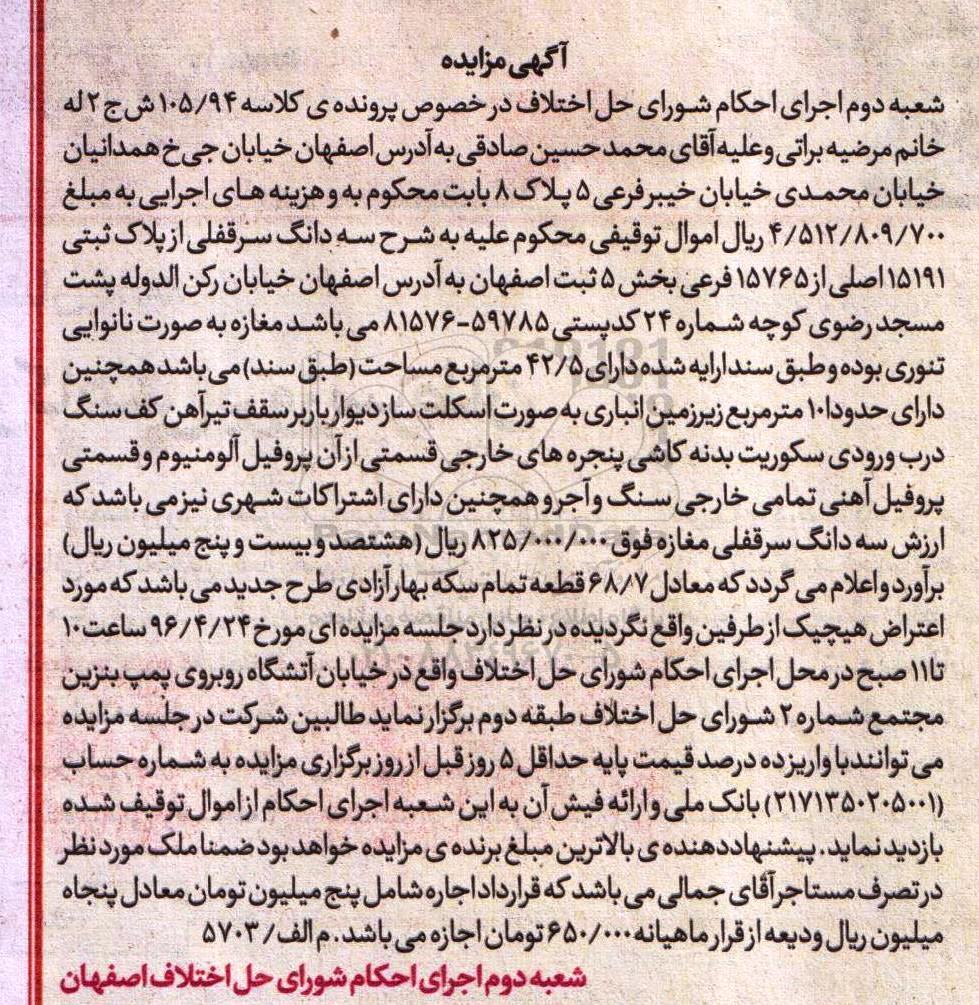 آگهی مزایده
شعبه دوم اجرای احکام شورای حل اختلاف در خصوص پرونده ی کلاسه ۱۰۵/۹۴ ش ج ۲ له
خانم مرضیه براتی وعلیه آقای محمد حسین صادقی به آدرس اصفهان خیابان جی خ همدانیان
خیابان محمدی خیابان خیبر فرعی ۵ پلاک ۸ بابت محکوم به و هزینه های اجرایی به مبلغ
۴/۵۱۲/۸۰۹/۷۰۰ ریال اموال توقیفی محکوم علیه به شرح سه دانگ سرقفلی از پلاک ثبتی
۱۵۱۹۱ اصلی از ۱۵۷۶۵ فرعی بخش ۵ ثبت اصفهان به آدرس اصفهان خیابان رکن الدوله پشت
مسجد رضوی کوچه شماره ۲۴ کدپستی ۵۹۷۸۵-۸۱۵۷۶ می باشد مغازه به صورت نانوایی
تنوری بوده و طبق سند ارایه شده دارای ۴۲/۵ مترمربع مساحت (طبق سند) می باشد همچنین
دارای حدودا۱۰ مترمربع زیرزمین انباری به صورت اسکلت ساز دیوار باربر سقف تیرآهن کف سنگ
درب ورودی سکوریت بدنه کاشی پنجره های خارجی قسمتی از آن پروفیل آلومنیوم و قسمتی
پروفیل آهنی تمامی خارجی سنگ و آجر و همچنین دارای اشتراکات شهری نیز می باشد که
ارزش سه دانگ سرقفلی مغازه فوق ۸۲۵/۰۰۰/۰۰۰ ریال (هشتصد و بیست و پنج میلیون ریال)
برآورد و اعلام می گردد که معادل ۶۸/۷ قطعه تمام سکه بهار آزادی طرح جدید می باشد که مورد
اعتراض هیچیک از طرفین واقع نگردیده در نظر دارد جلسه مزایده ای مورخ ۹۶/۴/۲۴ ساعت ۱۰
تا ۱۱ صبح در محل اجرای احکام شورای حل اختلاف واقع در خیابان آتشگاه روبروی پمپ بنزین
مجتمع شماره ۲ شورای حل اختلاف طبقه دوم برگزار نماید طالبین شرکت در جلسه مزایده
می توانند با واریز ده درصد قیمت پایه حداقل ۵ روز قبل از روز برگزاری مزایده به شماره حساب
(۲۱۷۱۳۵۰۲۰۵۰۰۱) بانک ملی و ارائه فیش آن به این شعبه اجرای احکام از اموال توقیف شده
بازدید نماید. پیشنهاددهنده ی بالاترین مبلغ برنده ی مزایده خواهد بود ضمنا ملک مورد نظر
در تصرف مستاجر آقای جمالی می باشد که قرارداد اجاره شامل پنج میلیون تومان معادل پنجاه
میلیون ریال ودیعه از قرار ماهیانه ۶۵۰/۰۰۰ تومان اجازه می باشد. م الف/ ۵۷۰۳
شعبه دوم اجرای احکام شورای حل اختلاف اصفهان